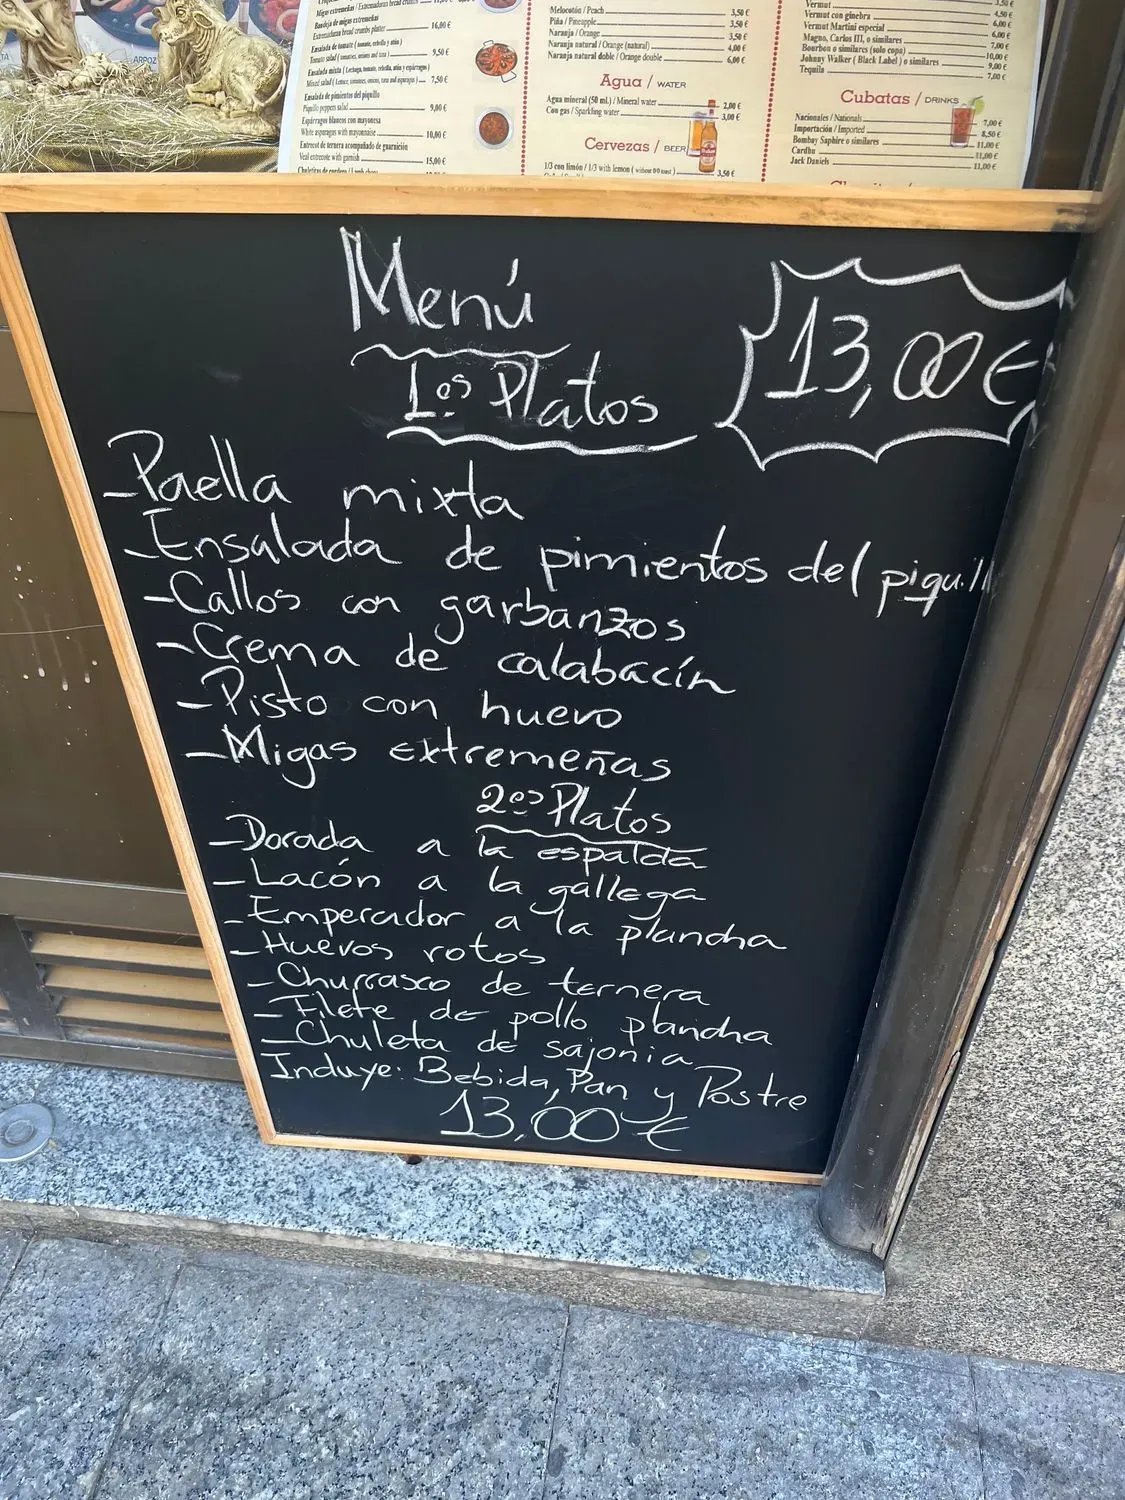 Migas extremeñas / Extremaduran bread crumbs
Bandeja de migas extremeñas
Extremaduran bread crumbs platter 16,00 €
Ensalada de tomate ( tomate, cebolla y atún )
Tomato salad ( tomatoes, onions and tuna ) 9,50 €
Ensalada mixta ( Lechuga, tomate, cebolla, atún y espárragos )
Mixed salad ( Lettuce, tomatoes, onions, tuna and asparagus ) 7,50 €
Ensalada de pimientos del piquillo
Piquillo peppers salad 9,00 €
Espárragos blancos con mayonesa
White asparagus with mayonnaise 10,00 €
Entrecot de ternera acompañado de guarnición
Veal entrecote with garnish 15,00 €
ARROZ
Melocotón / Peach 3,50 €
Piña / Pineapple 3,50 €
Naranja / Orange 3,50 €
Naranja natural / Orange (natural) 4,00 €
Naranja natural doble / Orange double 6,00 €
Agua / WATER
Agua mineral (50 ml.) / Mineral water 2,00 €
Con gas / Sparkling water 3,00 €
Cervezas / BEER
1/3 con limón / 1/3 with lemon ( without 0'0 toast ) 3,50 €
Vermut 3,50 €
Vermut con ginebra 4,50 €
Vermut Martini especial 6,00 €
Magno, Carlos III, o similares 6,00 €
Bourbon o similares (solo copa) 7,00 €
Johnny Walker ( Black Label ) o similares 10,00 €
Tequila 9,00 €
7,00 €
Cubatas / DRINKS
Nacionales / Nationals 7,00 €
Importación / Imported 8,50 €
Bombay Saphire o similares 11,00 €
Cardhu 11,00 €
Jack Daniels 11,00 €
Menú
13,00 €
1os Platos
-Paella mixta
-Ensalada de pimientos del piquillo
-Callos con garbanzos
-Crema de calabacín
-Pisto con huevo
-Migas extremeñas
2os Platos
-Dorada a la espalda
-Lacón a la gallega
-Emperador a la plancha
-Huevos rotos
-Churrasco de ternera
-Filete de pollo plancha
-Chuleta de sajonia
Incluye: Bebida, Pan y Postre
13,00 €